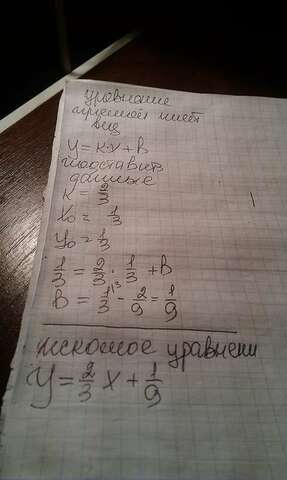 уравнение
прямой имеет
вид
y = k·x + b
подставить
данные
k = 2/3
x₀ = 1/3
y₀ = 1/3
1/3 = 2/3 · 1/3 + b
b = 1/3 ¹³ - 2/9 = 1/9
искомое уравнени
y = 2/3 x + 1/9